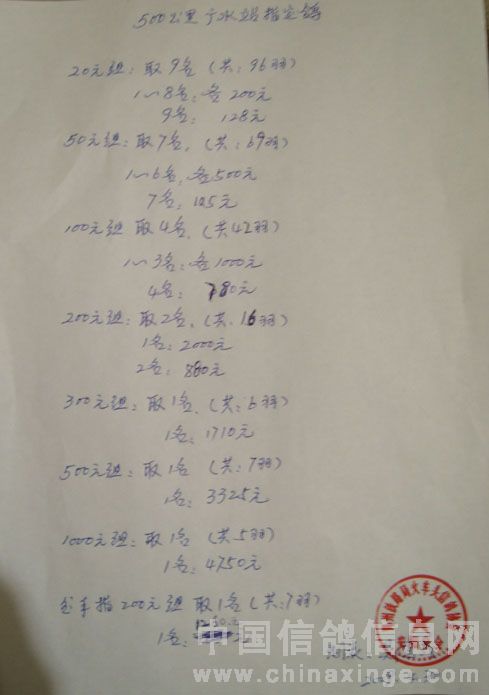 500公里广水站指定鸽
20元组：取9名（共：96羽）
1～8名：各200元
9名：128元
50元组：取7名，（共：69羽）
1～6名，各500元
7名：125元
100元组 取4名，（共42羽）
1～3名：各1000元
4名：780元
200元组：取2名，（共：16羽）
1名：2000元
2名：800元
300元组：取1名，（共：6羽）
1名：1710元
500元组：取1名（共：7羽）
1名：3325元
1000元组：取1名（共5羽）
1名：4750元
200元组 取1名（共：7羽）
1名：
中国信鸽信息网
www.chinaxinge.com